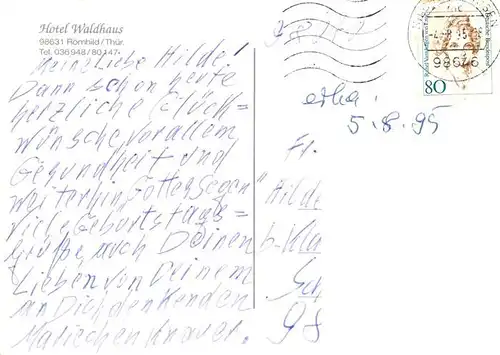 Hotel Waldhaus
98631 Römhild/Thür.
Tel. 036948/80147
Meine Liebe Hilde!
Dann schon heute
herzliche Glück=
wünsche vor allem
Gesundheit und
weiterhin Gottes Segen"
viele Geburtstags=
Grüße auch Deinen
Lieben von Deinem
an Dich denkenden
Mariechen Knauer.
80
98646
erha.
5.8.95
Fr.
Hilde
b-Kla
Sch
98